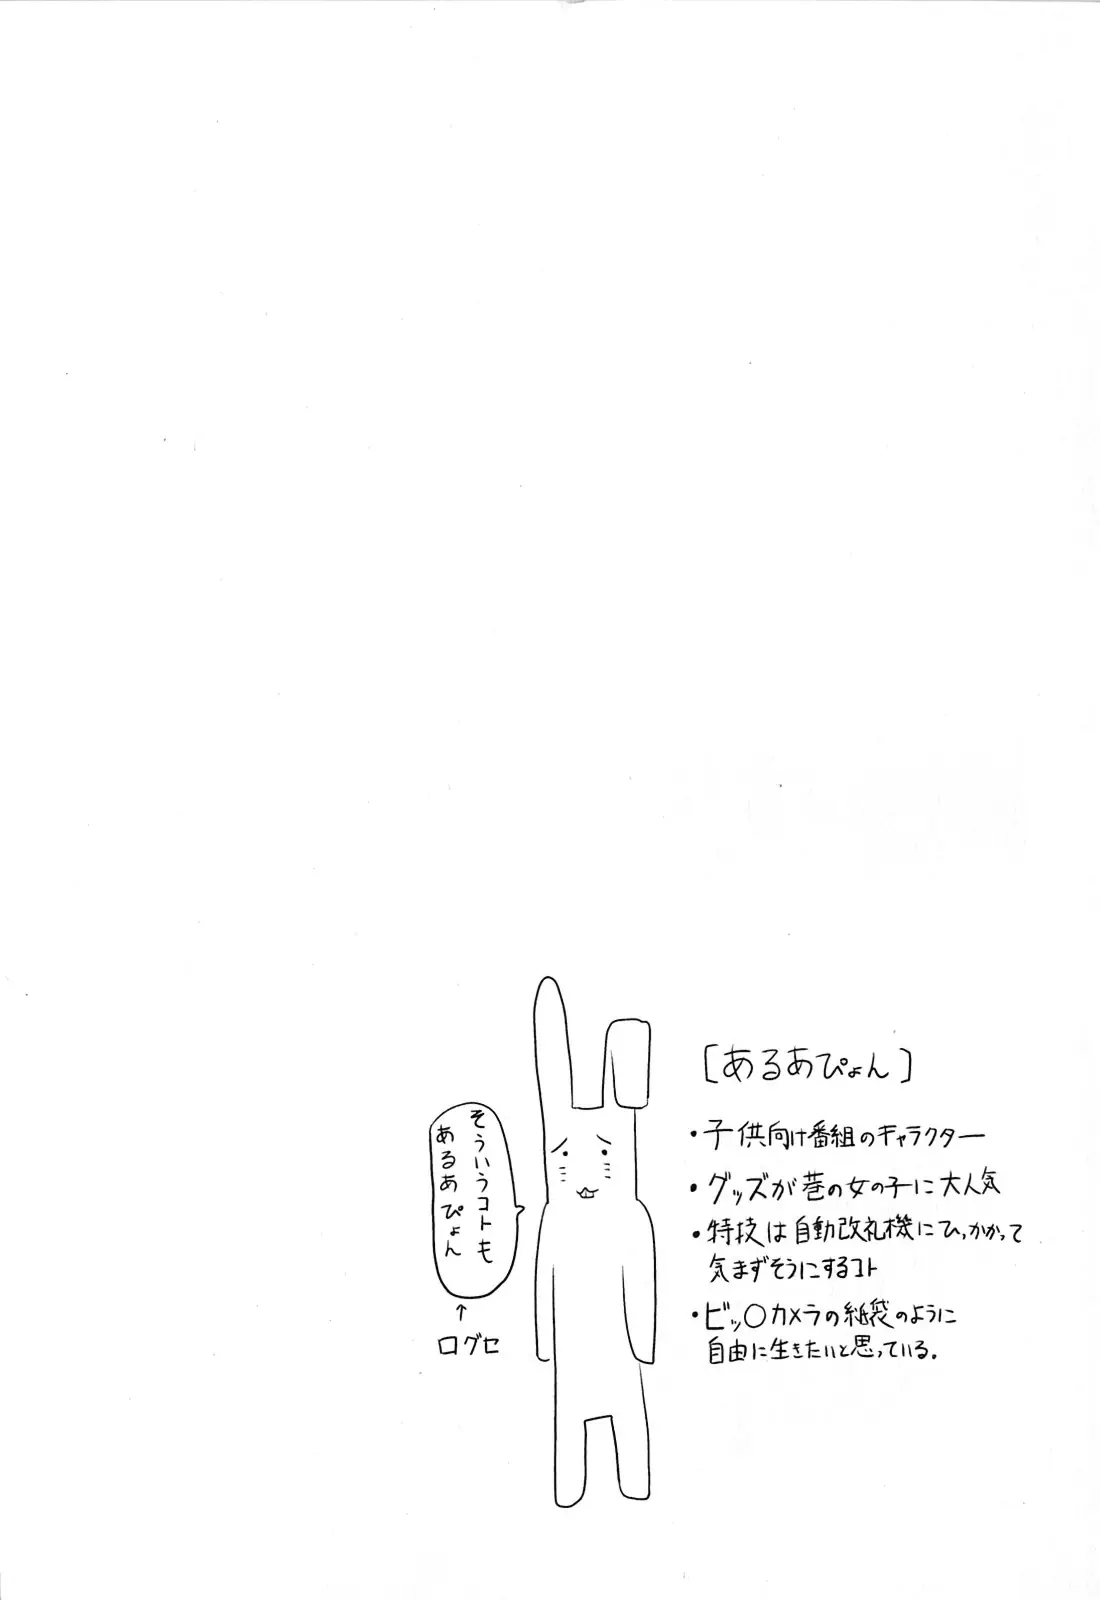 [あるあぴょん]
・子供向け番組のキャラクター
・グッズが巷の女の子に大人気
・特技は自動改札機にひっかかって
気まずそうにするコト
・ビッ〇カメラの紙袋のように
自由に生きたいと思っている.
そういうコトも
あるあぴょん
↑
口グセ